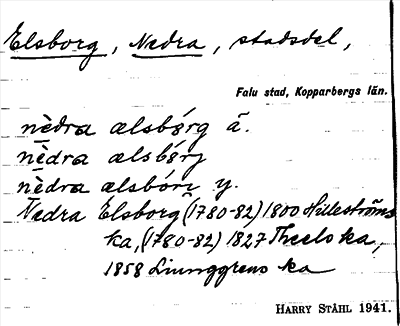 Elsborg, Nedra, stadsdel,
Falu stad, Kopparbergs län.
nèdra ælsbórg ä.
nèdra ælsbórj
nèdra ælsbóri y.
Nedra Elsborg (1780-82) 1800 Hilleströms
ka, (1780-82) 1827 Theelo ka,
1858 Liunggrens ka
HARRY STÅHL 1941.